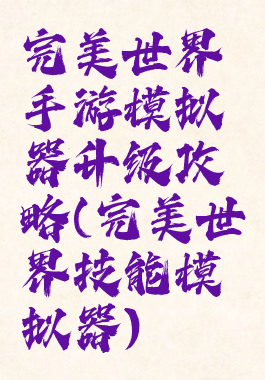 完美世界
手游模拟
器升级攻
略(完美世
界技能模
拟器)